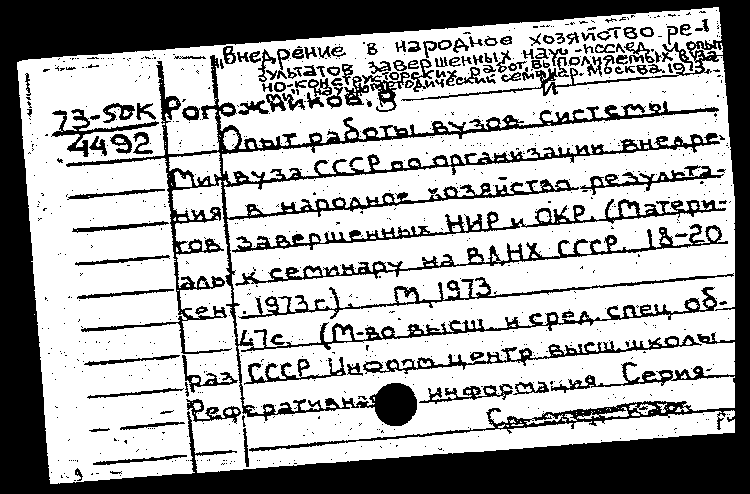 "Внедрение в народное хозяйство ре-
зультатов завершенных науч.-исслед. и опыт
но-конструкторских работ, выполняемых в вуза
ми", научно-методический семинар. Москва. 1973.
73-5DK Рогожников, В И
4492 Опыт работы вузов системы
Минвуза СССР по организации внедре-
ния в народное хозяйство результа-
тов завершенных НИР и ОКР. (Матери-
алы к семинару на ВДНХ СССР. 18-20
сент. 1973 г.). М, 1973.
47с. (М-во высш. и сред. спец об-
раз СССР. Информ центр высш. школы.
Реферативная информация. Серия
См. карт.